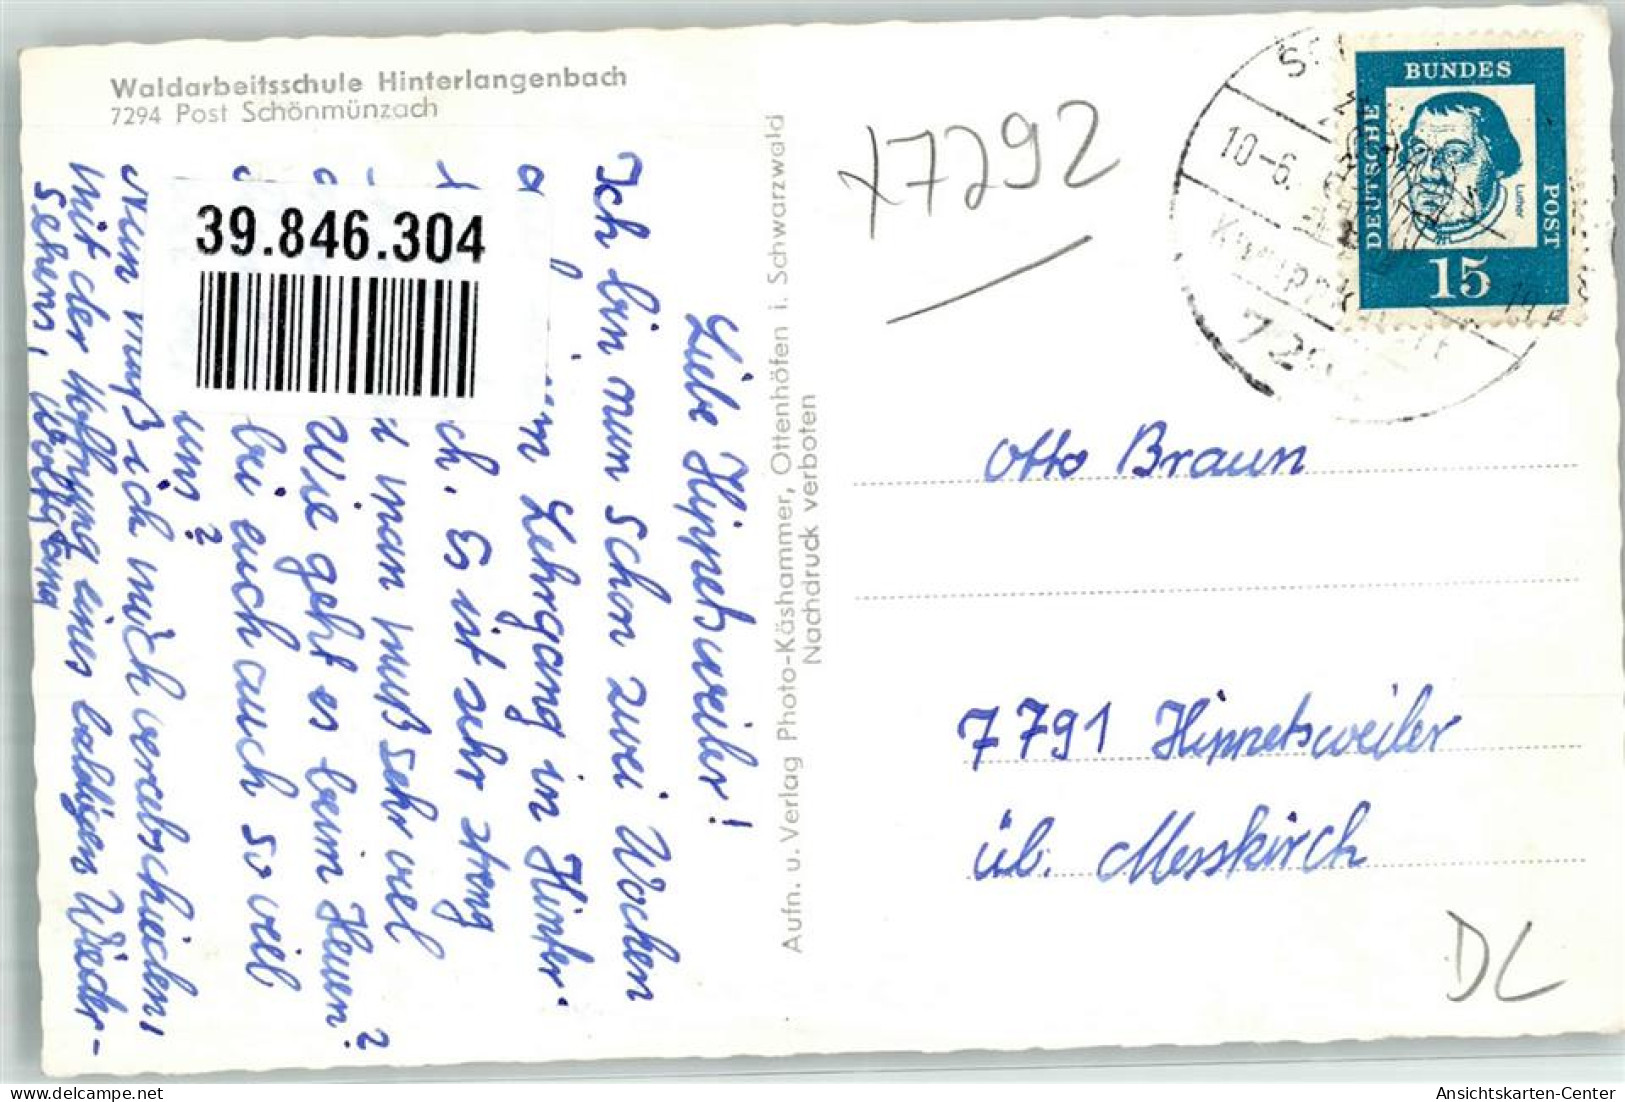 Waldarbeitsschule Hinterlangenbach
7294 Post Schönmünzach
39.846.304
Liebe Hippetsweiler!
Ich bin nun schon zwei Wochen
Lehrgang in Hinter-
ch. Es ist sehr streng
man muß sehr viel
Wie geht es beim Heuen?
bei euch auch so viel
uns?
Nun muß ich mich verabschieden,
mit der Hoffnung eines baldigen Wieder-
sehens, Wolfgang
Aufn. u. Verlag Photo-Käshammer, Ottenhöfen i. Schwarzwald
Nachdruck verboten
x7292
10-6.
DEUTSCHE
BUNDES
POST
Luther
15
Otto Braun
7791 Hippetsweiler
üb. Messkirch
DL
Ansichtskarten-Center